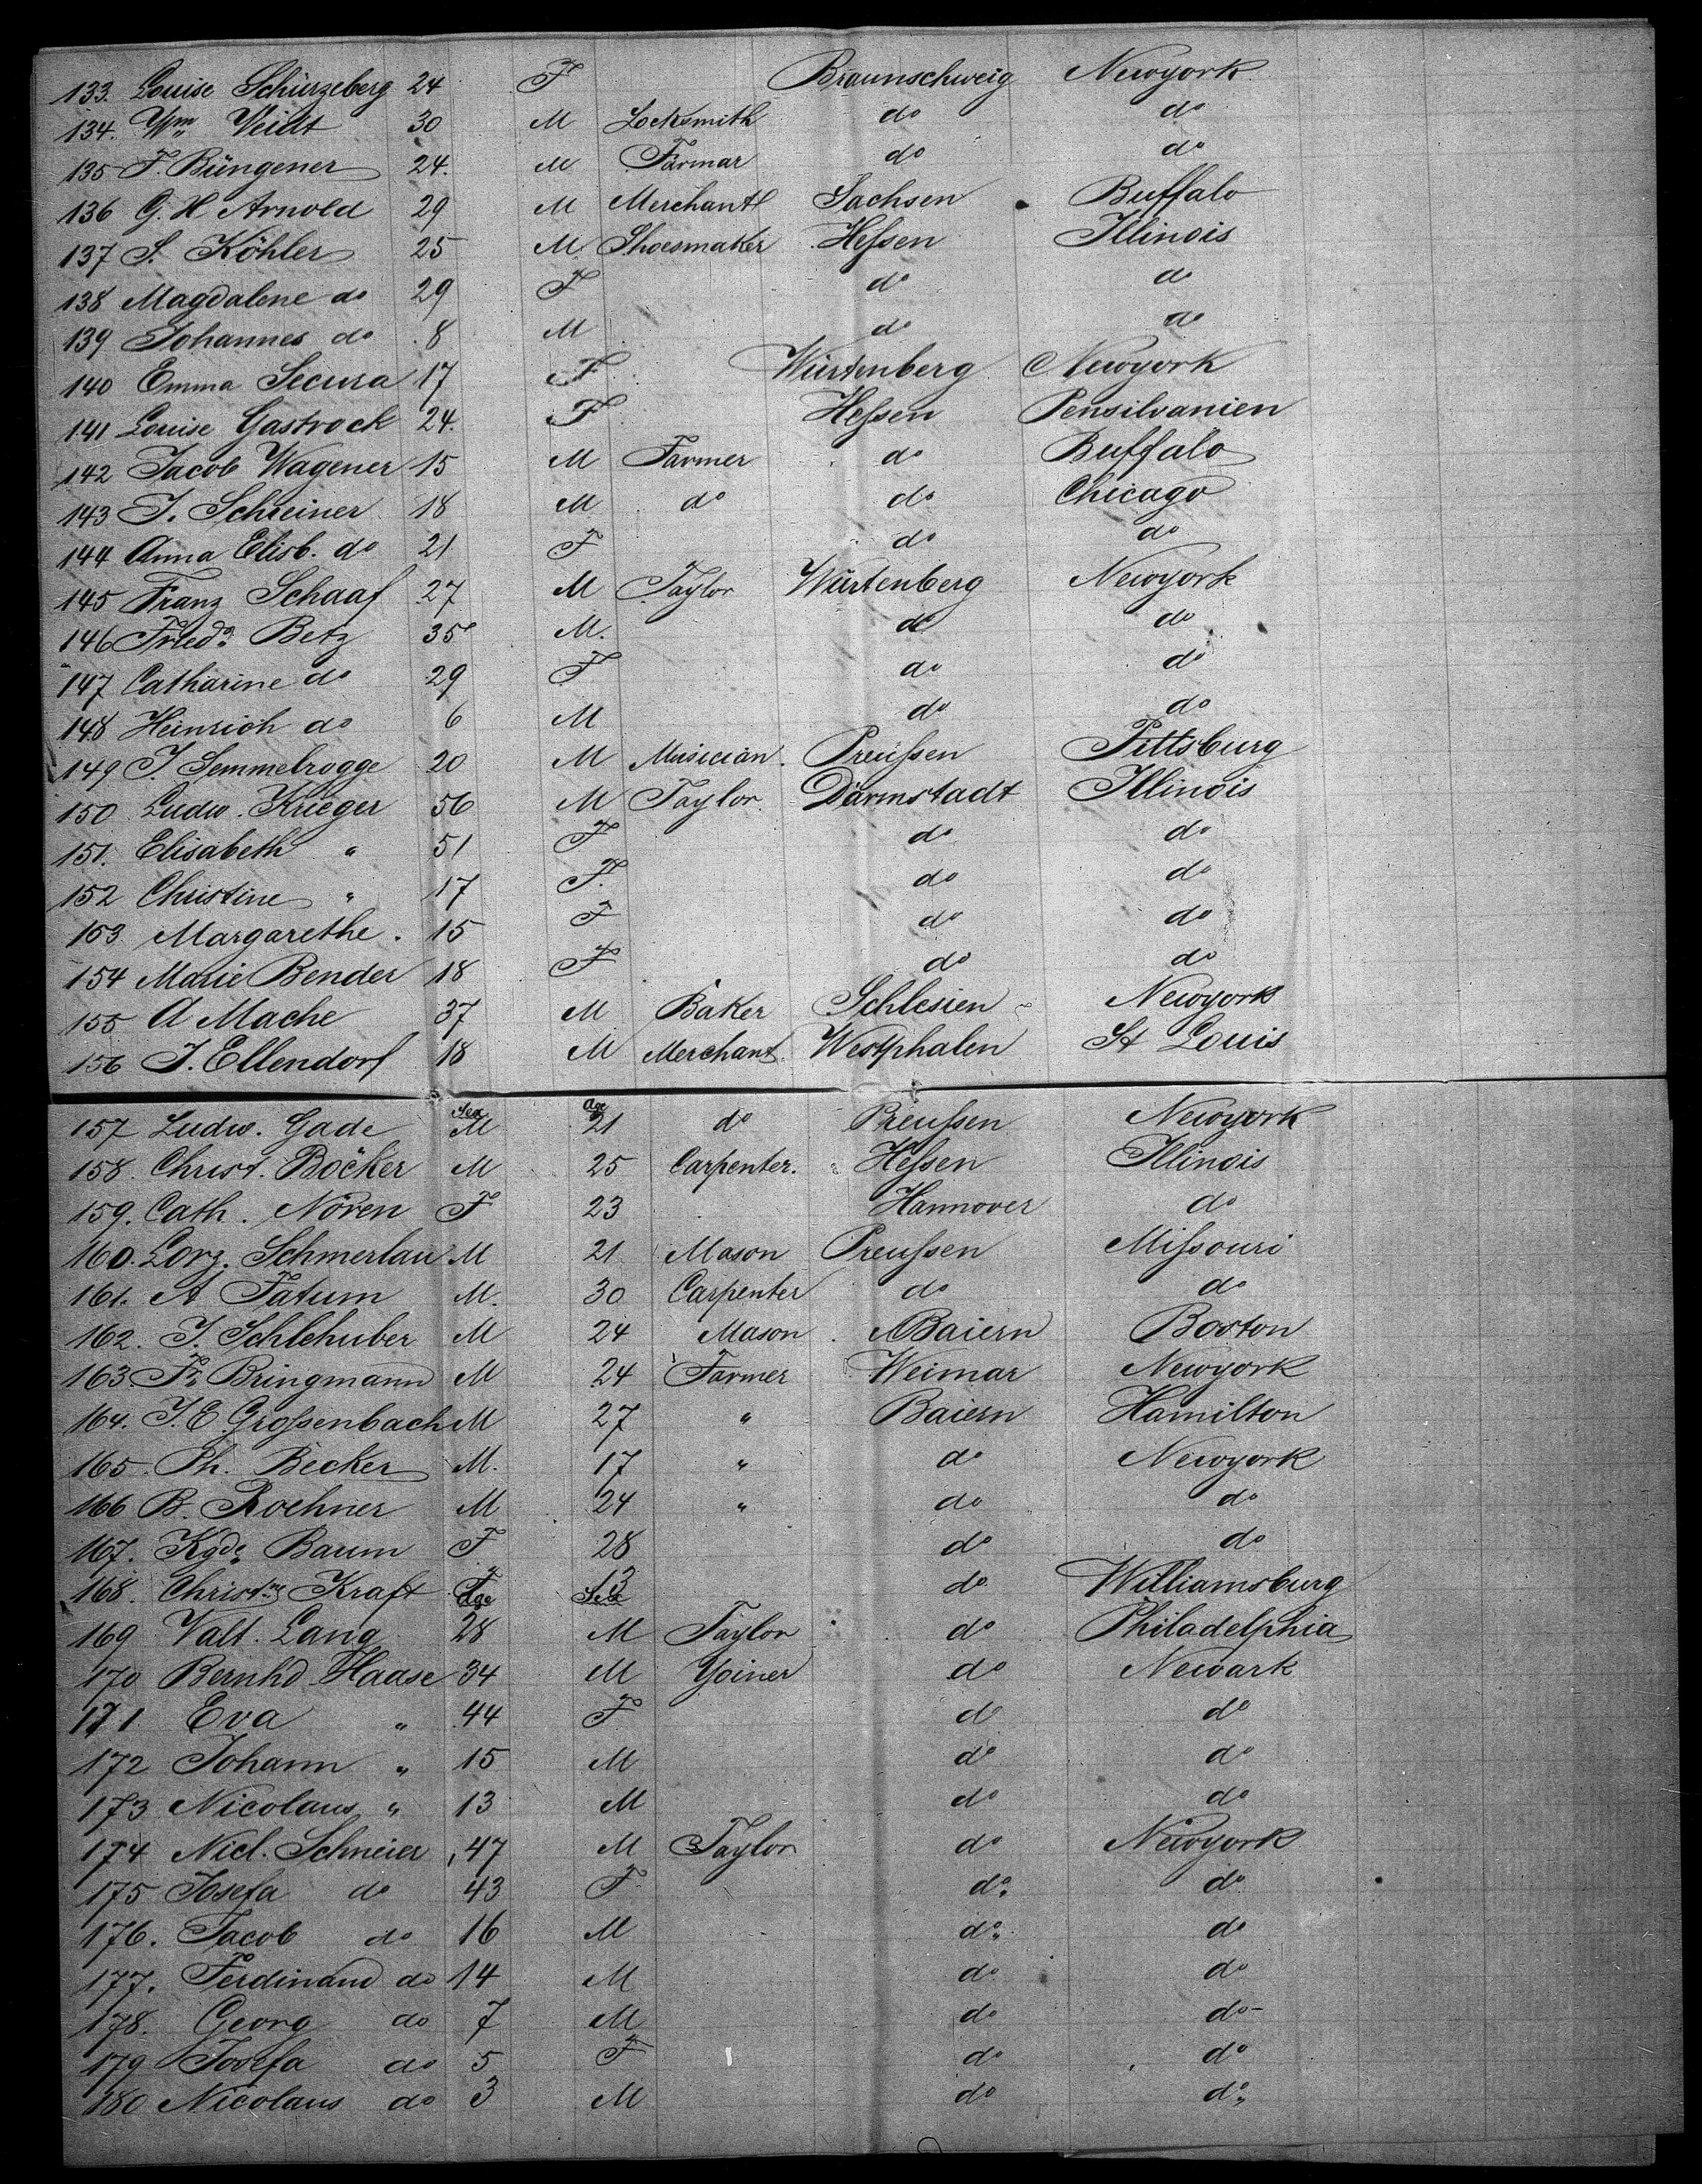 133. Louise Schürzeberg 24 F Braunschweig Newyork
134. Wm Veidt 30 M Locksmith do do
135 F. Büngener 24. M Farmar do do
136 G. H Arnold 29 M Merchant Sachsen Buffalo
137 S. Köhler 25 M. Shoesmaker Hessen Illinois
138 Magdalene do 29 F do do
139 Johannes do 8 M do do
140 Emma Secura 17 F Würtenberg Newyork
141 Louise Gastrock 24. F Hessen Pensilvanien
142 Jacob Wagener 15 M Farmer do Buffalo
143 J. Schreiner 18 M do do Chicago
144 Anna Elisb. do 21 F do do
145 Franz Schaaf 27 M Taylor Würtenberg Newyork
146 Friedr. Betz 35 M. do do
147 Catharine do 29 F do do
148 Heinrich do 6 M do do
149 J. Semmelrogge 20 M Musician. Preussen Pittsburg
150 Ludw. Krieger 56 M Taylor. Darmstadt Illinois
151. Elisabeth " 51 F do do
152 Christine " 17 F. do do
153 Margarethe . 15 F do do
154 Marie Bender 18 F do do
155 A Mache 37 M Baker Schlesien Newyork
156 J. Ellendorf 18 M Merchant Westphalen St Louis
Sex Age
157 Ludw. Gade M 21 do Preussen Newyork
158. Christ. Böcker M 25 Carpenter. Hessen Illinois
159. Cath. Nören F 23 Hannover do
160. Lorz. Schmerlau M 21 Mason Preussen Missouri
161. A Fatum M. 30 Carpenter do do
162. J. Schlehuber M 24 Mason Baiern Boston
163. Fr. Bringmann M 24 Farmer Weimar Newyork
164. J. E. Grossenbach M 27 " Baiern Hamilton
165. Ph. Becker M. 17 " do Newyork
166 B. Rochner M 24 " do do
167. Kgde Baum F 28 do do
168. Christne Kraft F 13 do Williamsburg
Age Sex
169 Valt. Lang 28 M Taylor do Philadelphia
170 Bernhd Haase 34 M Yoiner do Newark
171 Eva " 44 F do do
172 Johann " 15 M do do
173 Nicolaus " 13 M do do
174 Nicl. Schneier 47 M Taylor do Newyork
175 Josefa do 43 F do. do
176. Jacob do 16 M do. do
177. Ferdinand do 14 M do do
178. Georg do 7 M do do
179 Josefa do 5 F do do
180 Nicolaus do 3 M do do.